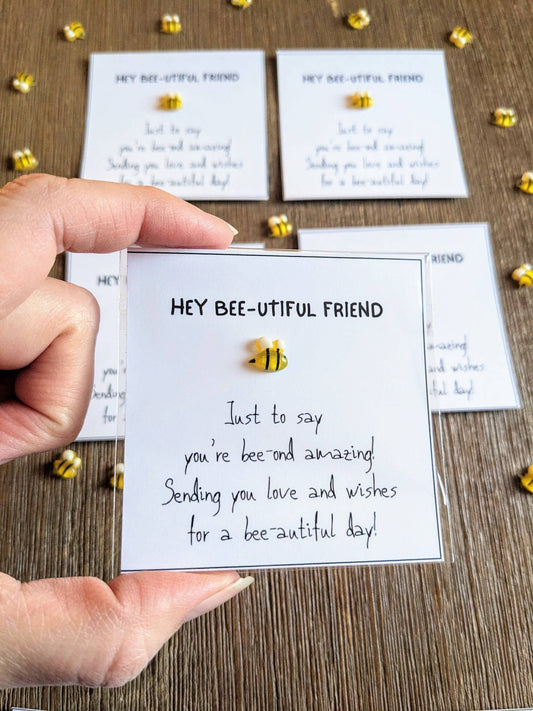 HEY BEE-UTIFUL FRIEND
Just to say
you're bee-ond amazing!
Sending you love and wishes
for a bee-autiful day!
HEY BEE-UTIFUL FRIEND
Just to say
you're bee-ond amazing!
Sending you love and wishes
for a bee-autiful day!
HEY BEE-UTIFUL FRIEND
Just to say
you're bee-ond amazing!
Sending you love and wishes
for a bee-autiful day!
HEY
you
Sending
for
RIEND
amazing!
and wishes
day!